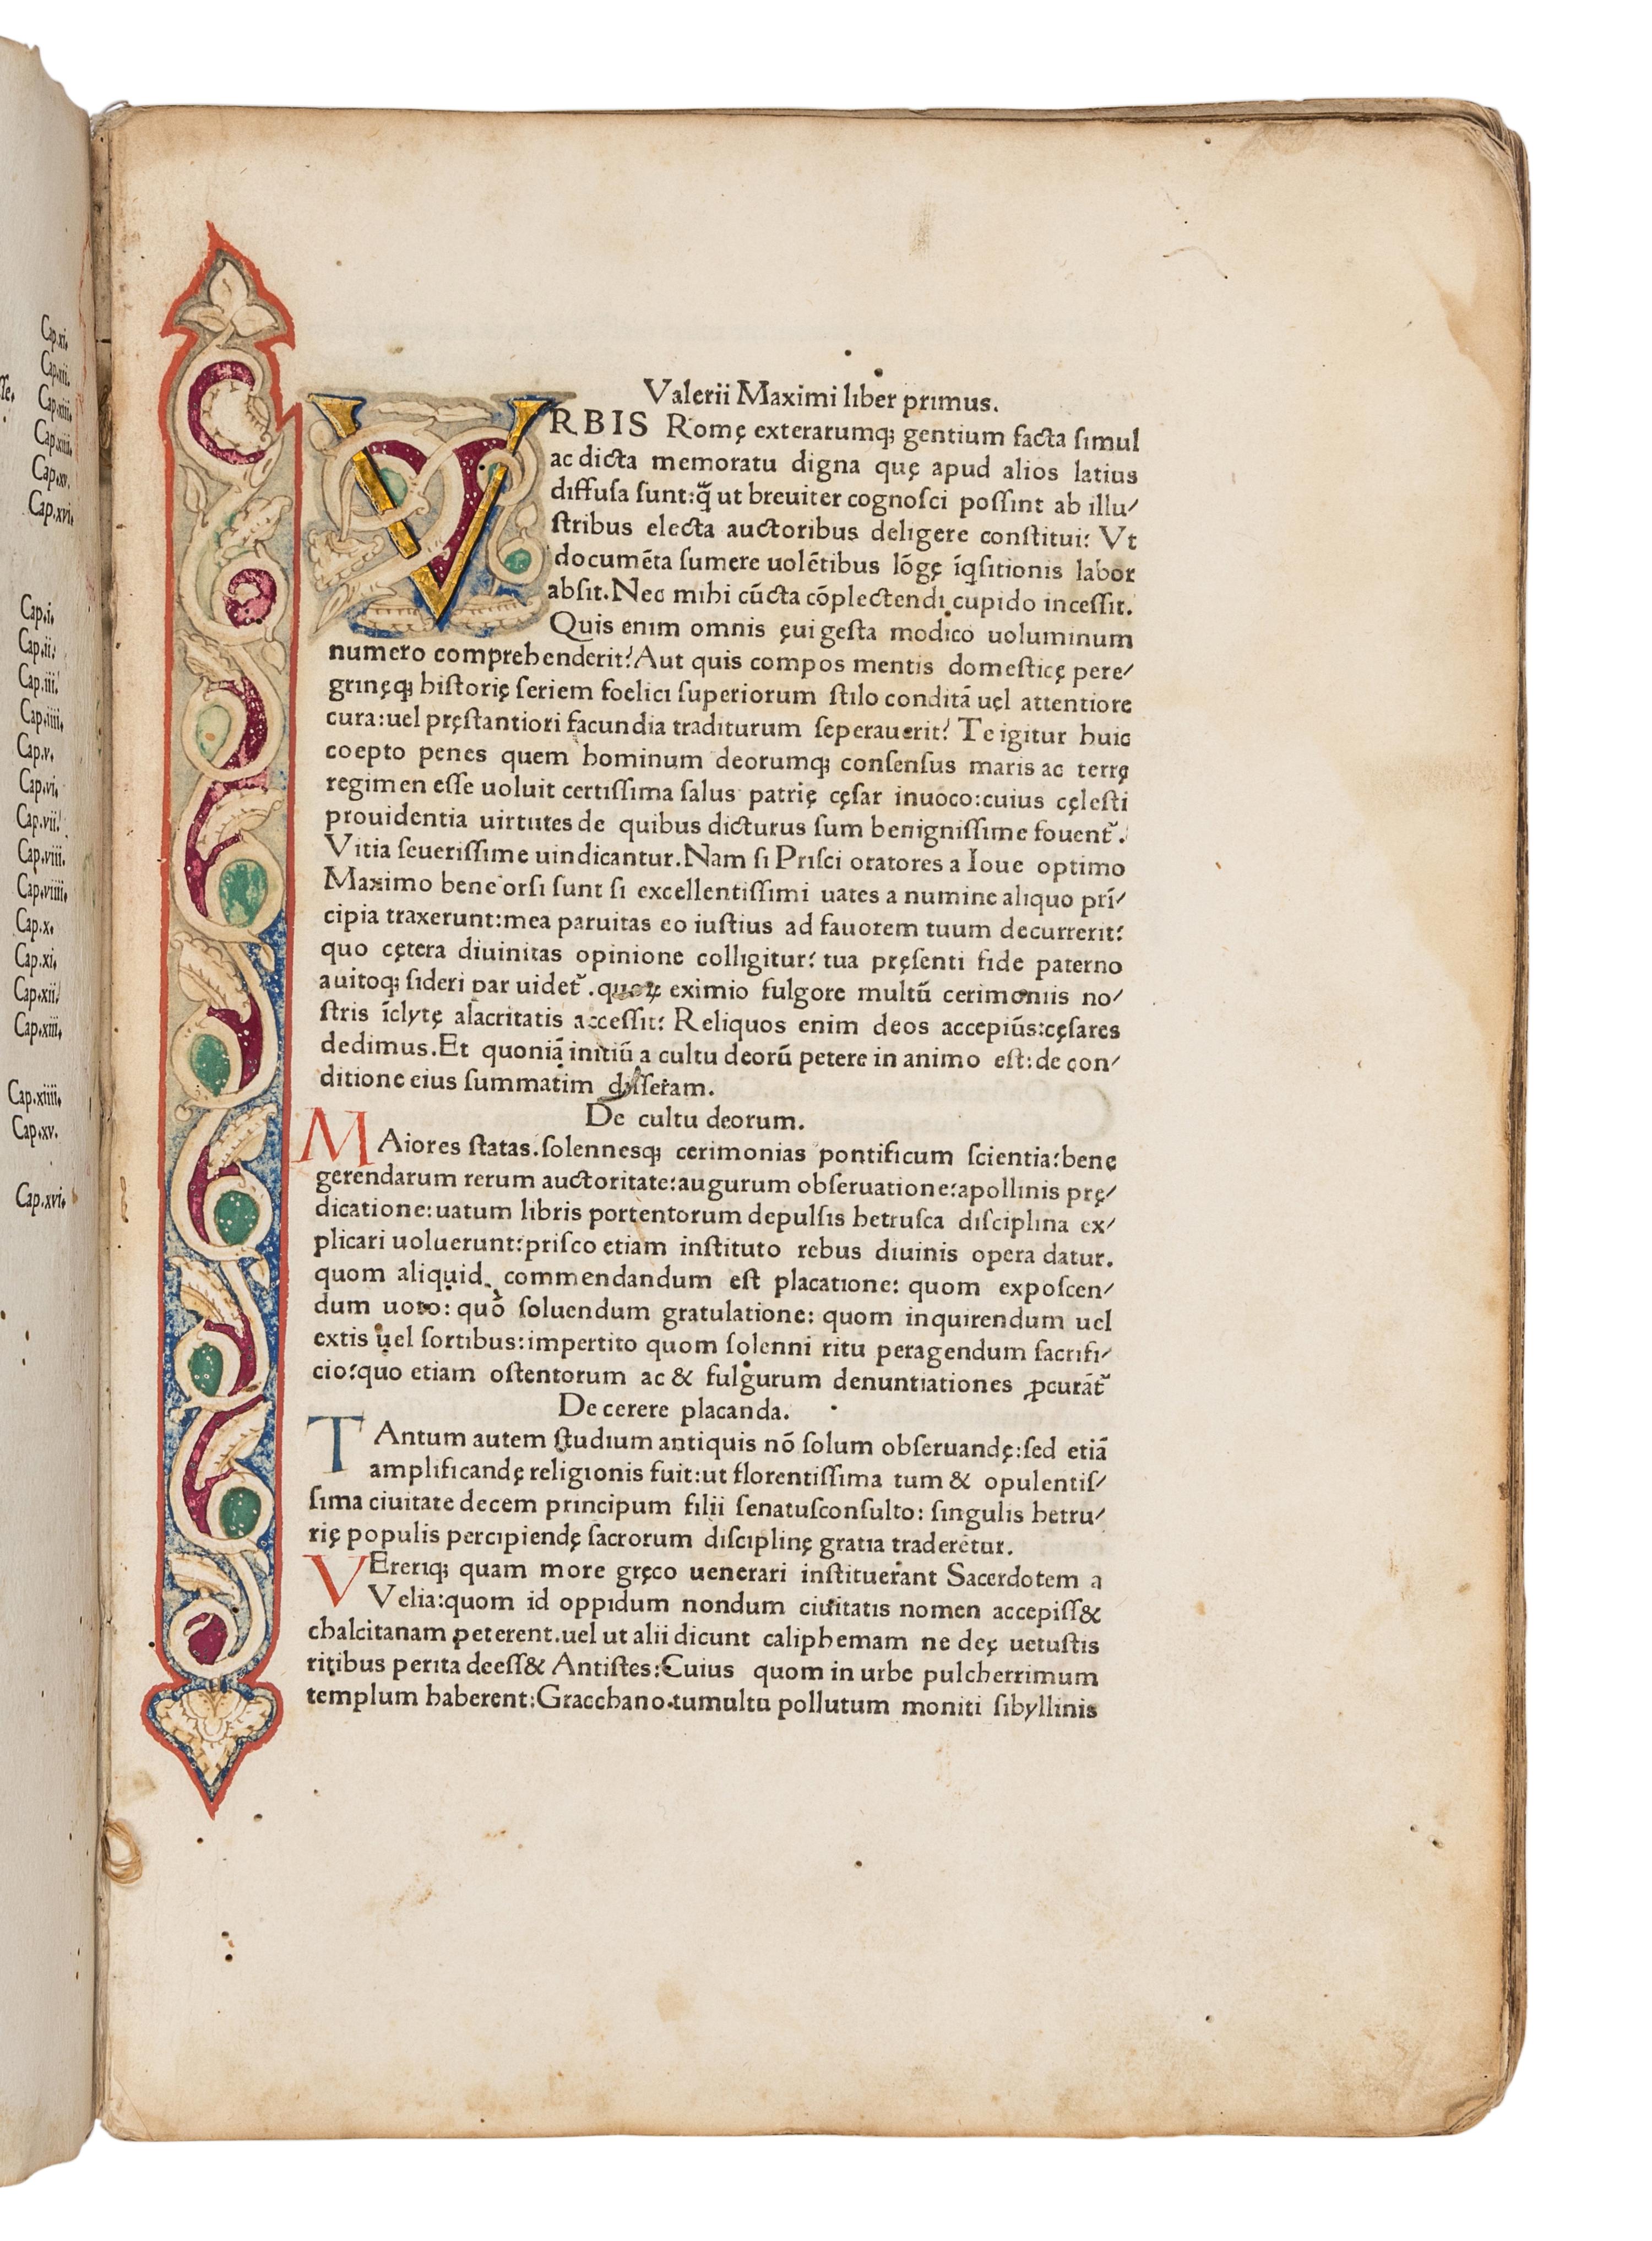 Cap.xi.
Cap.xii.
sse. Cap.xiii.
Cap.xiiii.
Cap.xv.
Cap.xvi.
Cap.i.
Cap.ii.
Cap.iii.
Cap.iiii.
Cap.v.
Cap.vi.
Cap.vii.
Cap.viii.
Cap.viiii.
Cap.x.
Cap.xi.
Cap.xii.
Cap.xiii.
Cap.xiiii.
Cap.xv.
Cap.xvi.
Valerii Maximi liber primus.
VRBIS Romę exterarumq; gentium facta ſimul
ac dicta memoratu digna quę apud alios latius
diffuſa ſunt:q̃ ut breuiter cognoſci poſſint ab illu/
ſtribus electa auctoribus deligere conſtitui: Vt
documẽta ſumere uolẽtibus lõgę ĩqſitionis labor
abſit. Nec mihi cũcta cõplectendi cupido inceſſit.
Quis enim omnis ęui geſta modico uoluminum
numero comprehenderit? Aut quis compos mentis domeſticę pere/
grinęq; hiſtorię ſeriem foelici ſuperiorum ſtilo conditã uel attentiore
cura:uel pręſtantiori facundia traditurum ſeperauerit? Te igitur huic
coepto penes quem hominum deorumq; conſenſus maris ac terrę
regimen eſſe uoluit certiſſima ſalus patrię cęſar inuoco:cuius cęleſti
prouidentia uirtutes de quibus dicturus ſum benigniſſime fouent᷑.
Vitia ſeueriſſime uindicantur. Nam ſi Priſci oratores a Ioue optimo
Maximo bene orſi ſunt ſi excellentiſſimi uates a numine aliquo prĩ/
cipia traxerunt:mea paruitas eo iuſtius ad fauorem tuum decurrerit:
quo cętera diuinitas opinione colligitur: tua pręſenti fide paterno
auitoq; ſideri par uidet᷑. quoꝝ eximio fulgore multũ cerimoniis no/
ſtris ĩclytę alacritatis acceſſit: Reliquos enim deos accepiũs:cęſares
dedimus. Et quoniã initiũ a cultu deorũ petere in animo eſt: de con/
ditione eius ſummatim dyſſeram.
De cultu deorum.
MAiores ſtatas. ſolenneſq; cerimonias pontificum ſcientia: bene
gerendarum rerum auctoritate:augurum obſeruatione:apollinis prę/
dicatione:uatum libris portentorum depulſis hetruſca diſciplina ex/
plicari uoluerunt:priſco etiam inſtituto rebus diuinis opera datur.
quom aliquid commendandum eſt placatione: quom expoſcen/
dum uoto: quõ ſoluendum gratulatione: quom inquirendum uel
extis uel ſortibus:impertito quom ſolenni ritu peragendum ſacrifi/
cio:quo etiam oſtentorum ac & fulgurum denuntiationes ꝓcurãt᷑
De cerere placanda.
TAntum autem ſtudium antiquis nõ ſolum obſeruandę:ſed etiã
amplificandę religionis fuit:ut florentiſſima tum & opulentiſ/
ſima ciuitate decem principum filii ſenatuſconſulto: ſingulis hetru/
rię populis percipiendę ſacrorum diſciplinę gratia traderetur.
VEreriq; quam more gręco uenerari inſtituerant Sacerdotem a
Velia:quom id oppidum nondum ciuitatis nomen accepiſſ&
chalcitanam peterent. uel ut alii dicunt caliphemam ne deę uetuſtis
ritibus perita deeſſ& Antiſtes: Cuius quom in urbe pulcherrimum
templum haberent: Gracchano tumultu pollutum moniti ſibyllinis